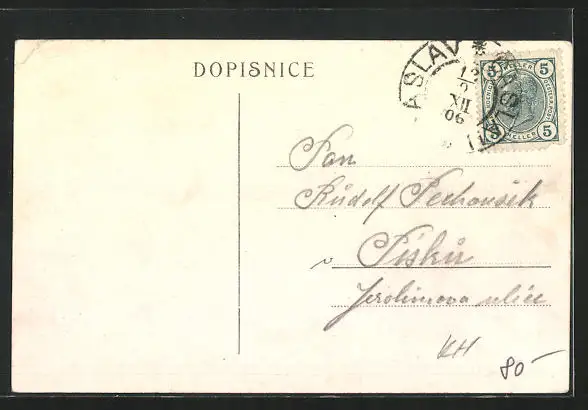 DOPISNICE
ASLAV
12
XII
06
5 HELLER 5
5 HELLER 5
Pan
Rudolf Pechousek
v Písku
Jeronimova ulice
KH
80-